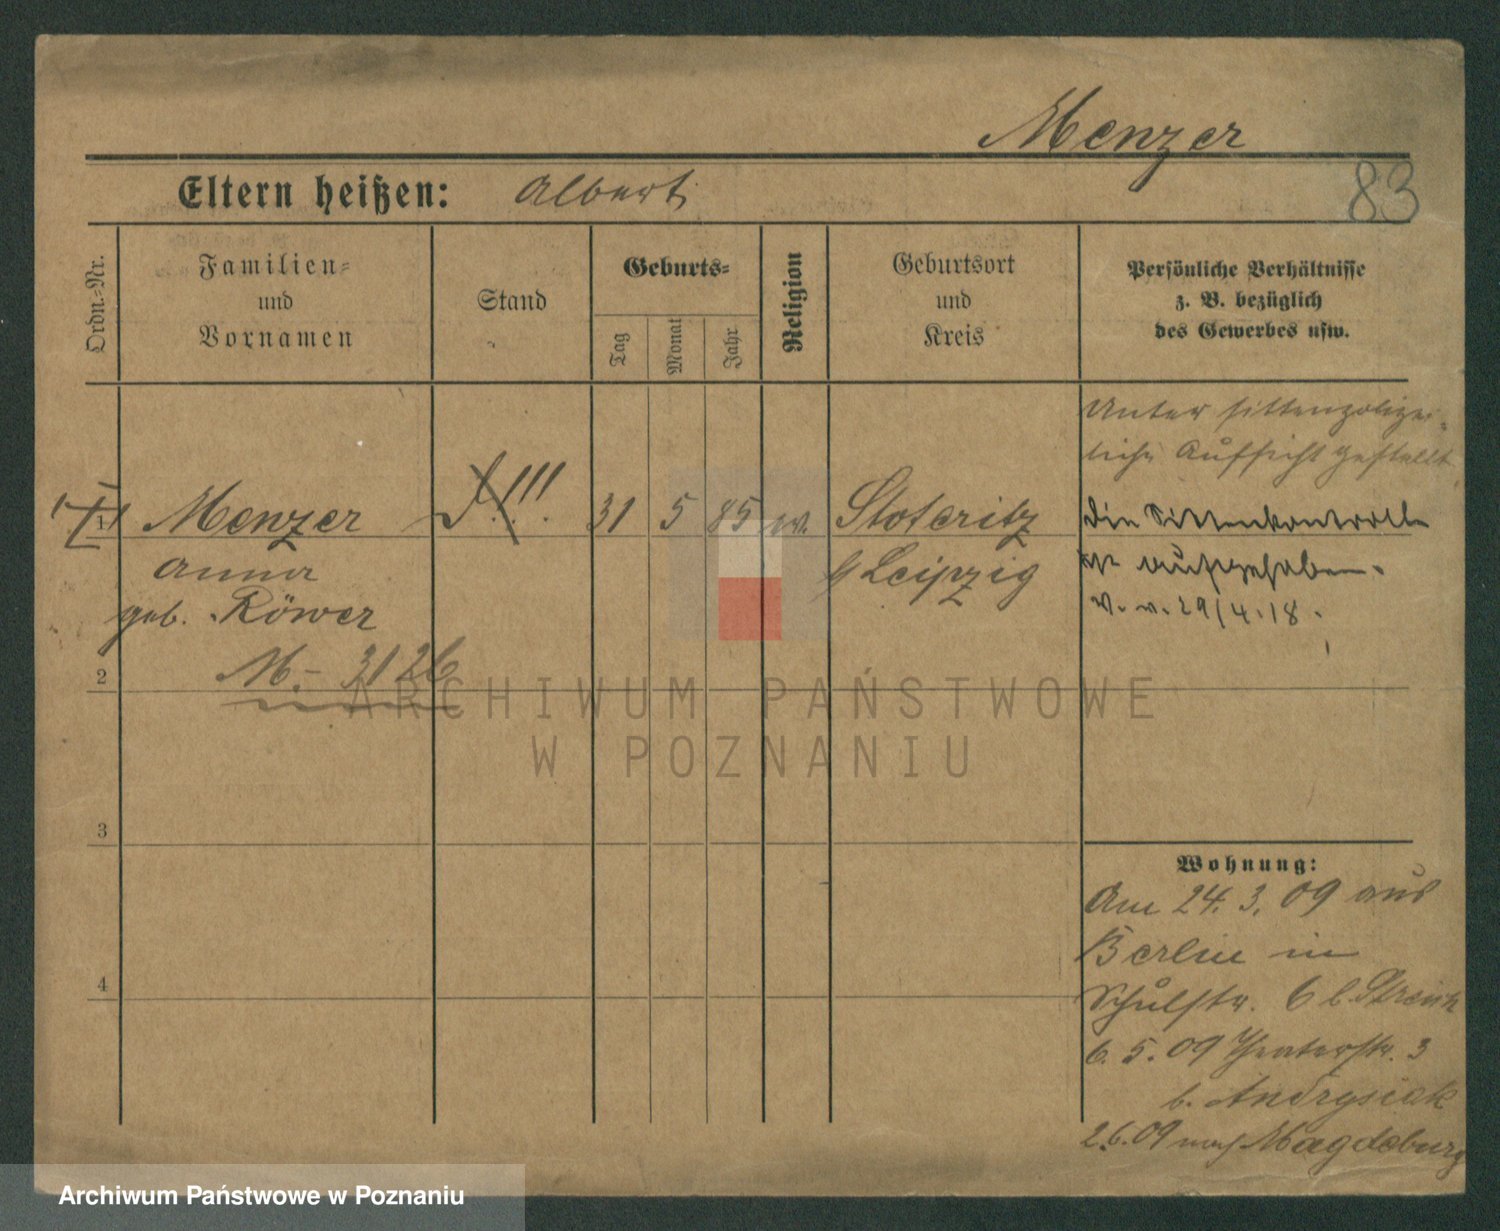 Menzer
83
Eltern heißen: Albert
Ordn.-Nr.
Familien-
und
Vornamen
Stand
Geburts-
Tag
Monat
Jahr
Religion
Geburtsort
und
Kreis
Persönliche Verhältnisse
z. B. bezüglich
des Gewerbes usw.
Unter sittenpolizei-
liche Aufsicht gestellt
1 Menzer 31 5 85 ev. Stoteritz
Anna
geb. Röwer
M.- 3126
Leipzig
Die Sittenkontrolle
ist aufgehoben.
V. v. 29/4.18.
2
3
4
Wohnung:
Am 24. 3. 09 aus
Berlin in
Schulstr. 6 b. Strenk
6. 5. 09 Theaterstr. 3
b. Andrysiak
2.6.09 nach Magdeburg
ARCHIWUM PAŃSTWOWE
W POZNANIU
Archiwum Państwowe w Poznaniu